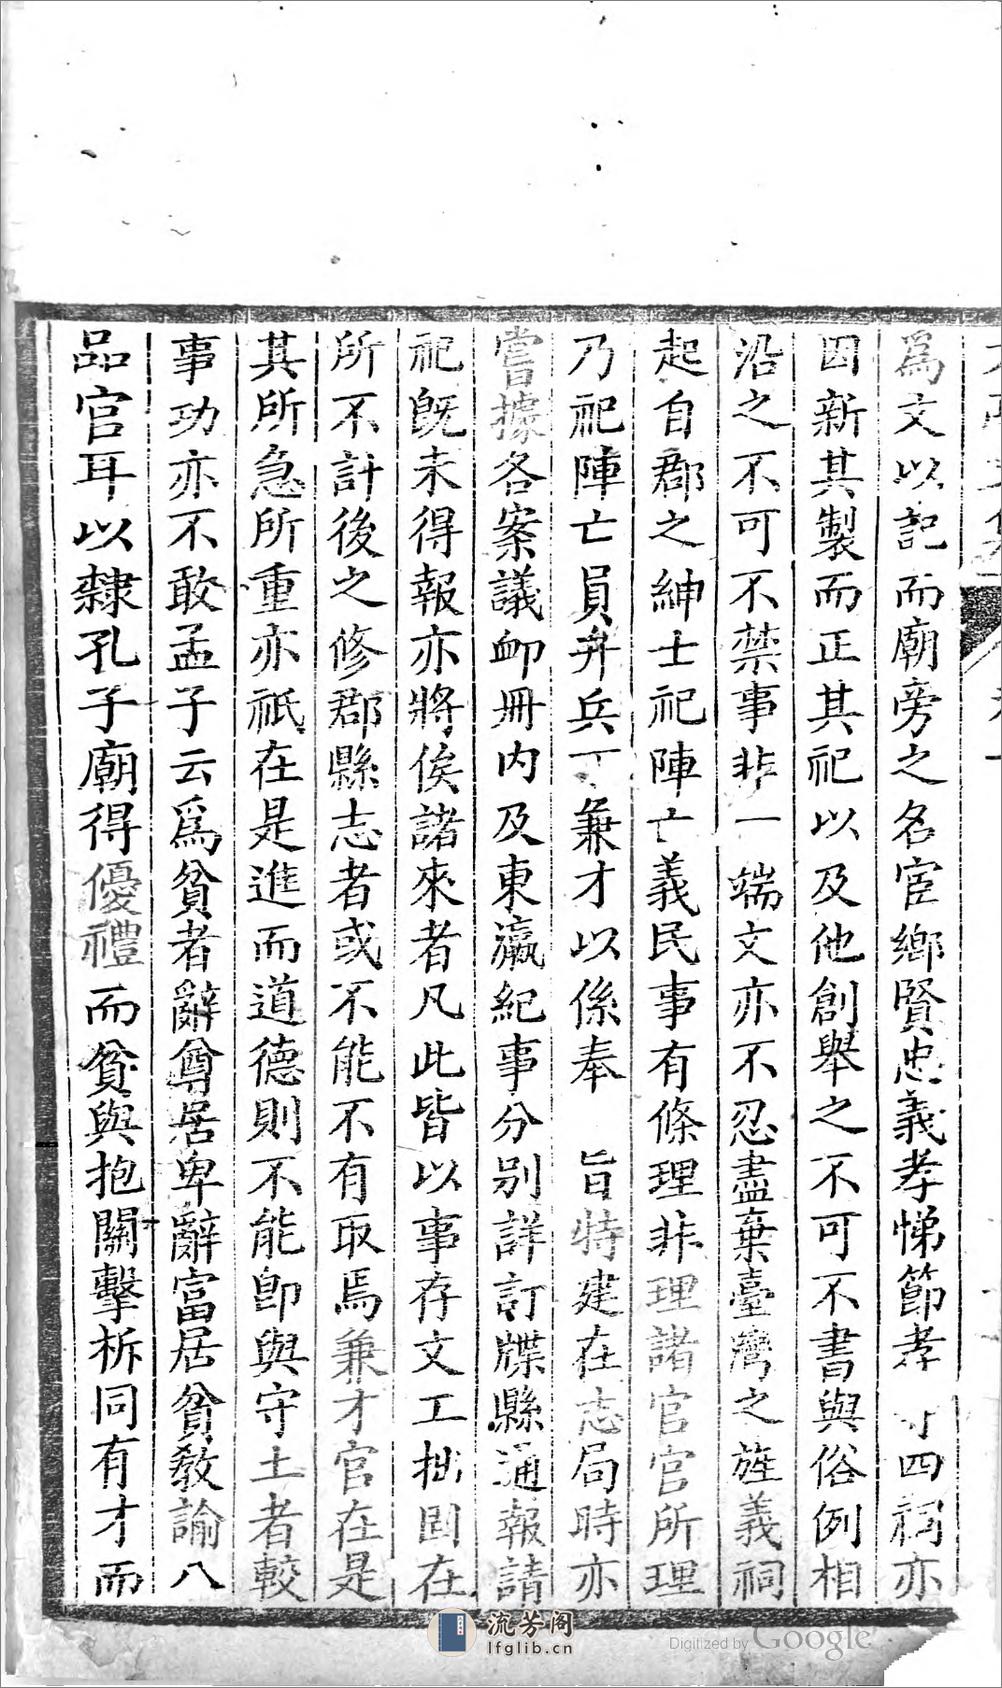 爲文以記而廟旁之名宦鄉賢忠義孝悌節孝 四祠亦
因新其製而正其祀以及他創舉之不可不書與俗例相
沿之不可不禁事非一端文亦不忍盡棄臺灣之旌義祠
起自郡之紳士祀陣亡義民事有條理非理諸官官所理
乃祀陣亡員弁兵丁兼才以係奉 旨特建在志局時亦
嘗據各案議卹冊内及東瀛紀事分別詳訂牒縣通報請
祀旣未得報亦將俟諸來者凡此皆以事存文工拙固在
所不計後之修郡縣志者或不能不有取焉兼才官在是
其所急所重亦祇在是進而道德則不能卽與守土者較
事功亦不敢孟子云爲貧者辭尊居卑辭富居貧敎諭八
品官耳以隸孔子廟得優禮而貧與抱關擊柝同有才而
流芳阁
lfglib.cn
Digitized by Google